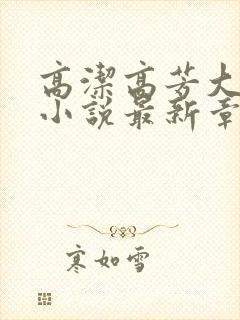 高潔高芳大
小說最新章
寒如雪